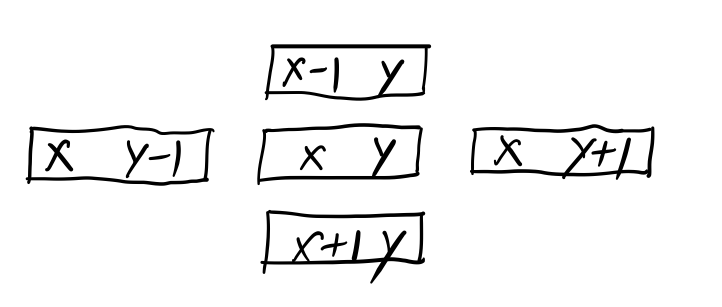 x-1 y
x y-1 x y x y+1
x+1 y